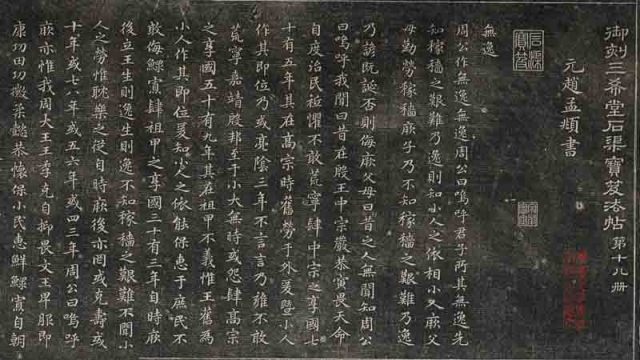 御刻三希堂石渠寶笈法帖 第十九册
元趙孟頫書
無逸
周公作無逸周公曰嗚呼君子所其無逸先
知稼穡之艱難乃逸則知小人之依相小人厥父
母勤勞稼穡厥子乃不知稼穡之艱難乃逸
乃諺既誕否則侮厥父母曰昔之人無聞知周公
曰嗚呼我聞曰昔在殷王中宗嚴恭寅畏天命
自度治民祗懼不敢荒寧肆中宗之享國七
十有五年其在高宗時舊勞于外爰暨小人
作其即位乃或亮陰三年不言言乃雍不敢
荒寧嘉靖殷邦至于小大無時或怨肆高宗
之享國五十有九年其在祖甲不義惟王舊為
小人作其即位爰知小人之依能保惠于庶民不
敢侮鰥寡肆祖甲之享國三十有三年自時厥
後立王生則逸生則逸不知稼穡之艱難不聞小
人之勞惟耽樂之從自時厥後亦罔或克壽或
十年或七八年或五六年或四三年周公曰嗚呼
厥亦惟我周太王王季克自抑畏文王卑服即
康功田功徽柔懿恭懷保小民惠鮮鰥寡自朝